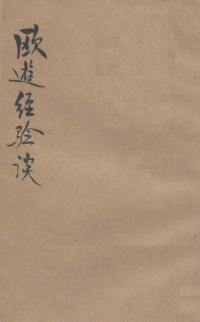 欧遊经验谈